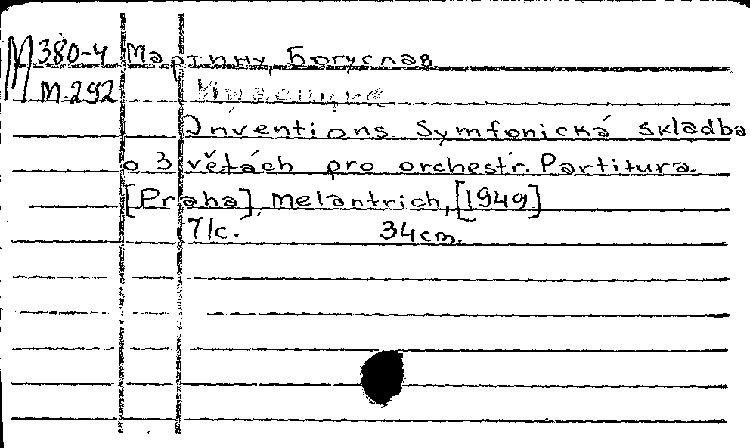 М 380-4 Мартину, Богуслав
М-292
Inventions Symfonická skladba
o 3 větách pro orchestr. Partitura.
[Praha], Melantrich, [1949]
71с. 34cm.